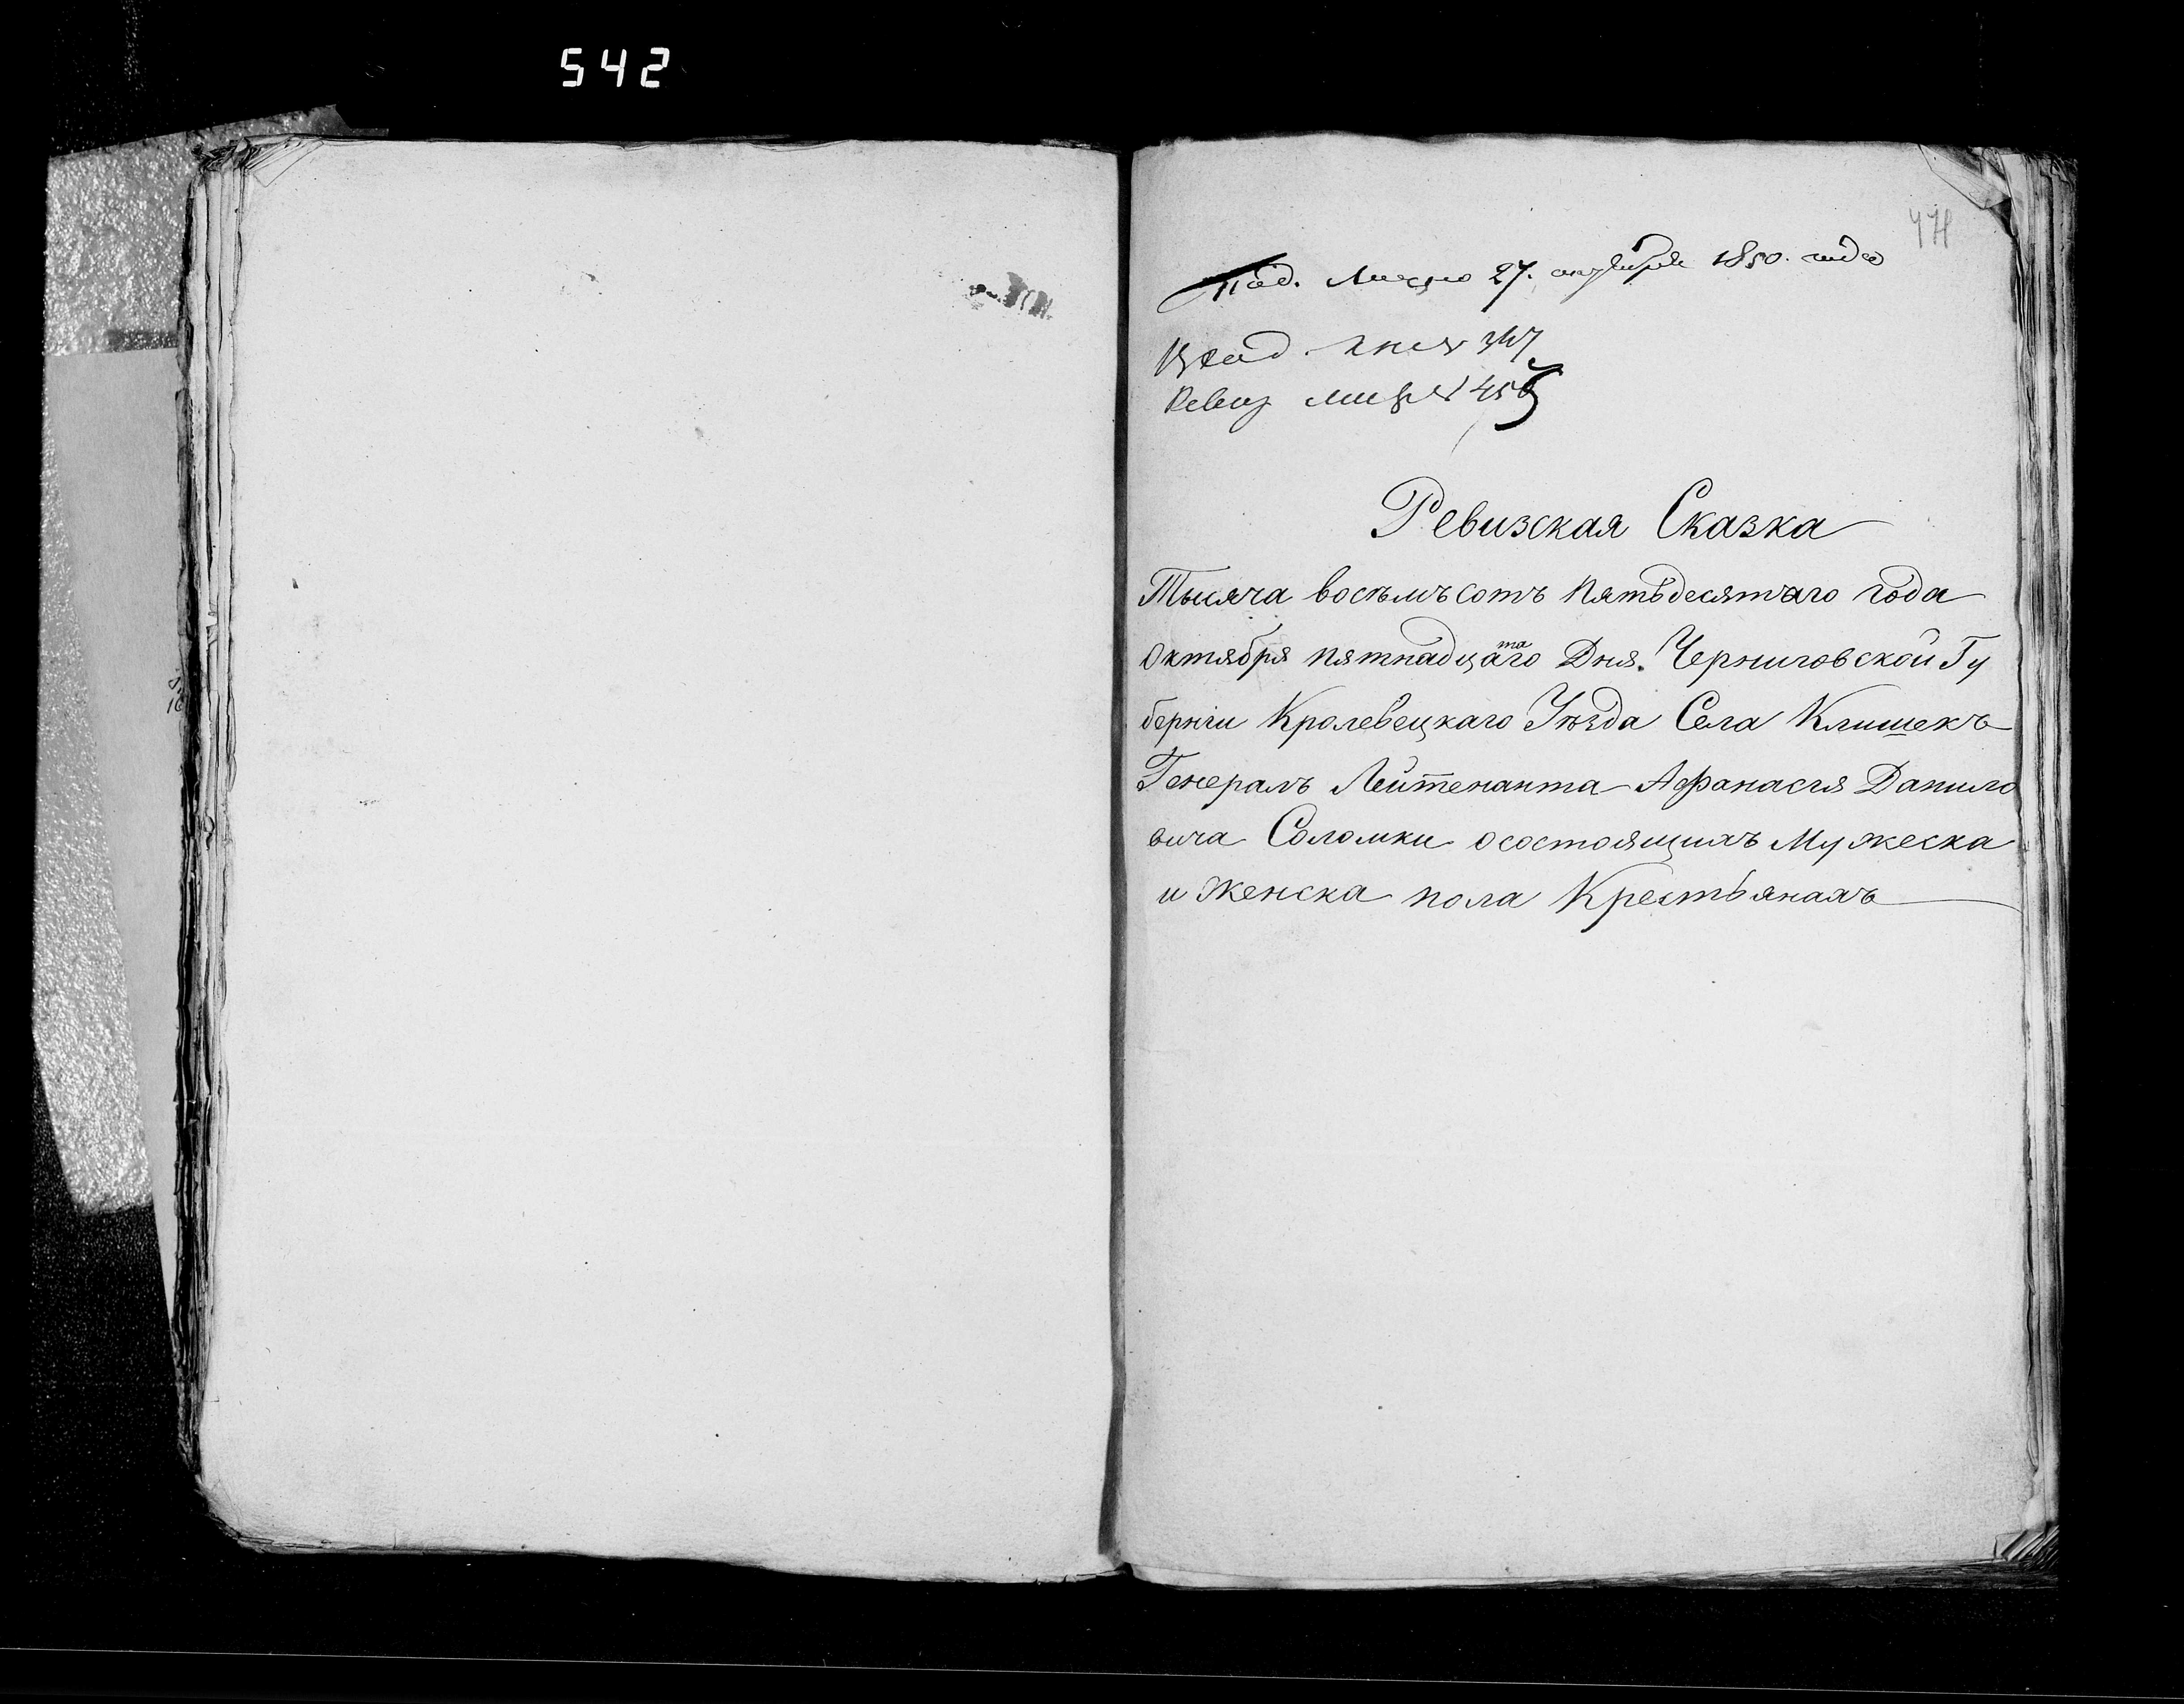 542
Под. Лично 27. октября 1850. года
Вход. кн. № 347
Ревиз № 456
Ревизская Сказка
Тысяча восѣмъсотъ Пятьдесятаго года
Октября пятнадцатаго Дня. Черниговской Гу
берніи Кролевецкаго Уѣзда Села Клишекъ
Генералъ Лейтенанта Афанасія Данило
вича Соломки осостоящихъ Мужеска
и Женска пола Крестьянахъ